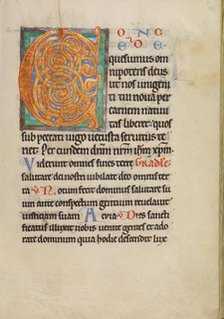 C ONC
EDE
quesumus om
nipotens deus
ut nos unigeni
ti tui noua per
carnem natiui
tas liberet. quos
sub peccati iugo uetusta seruitus te
net. Per eundem dnm nrm ihm xpm.
Viderunt omnes fines terre
salutare dei nostri iubilate deo omnis ter
ra Notum fecit dominus salutare su
um ante conspectum gentium reuelauit
iusticiam suam Dies sancti
ficatus illuxit nobis uenite gentes et ado
rate dominum quia hodie descendit lux